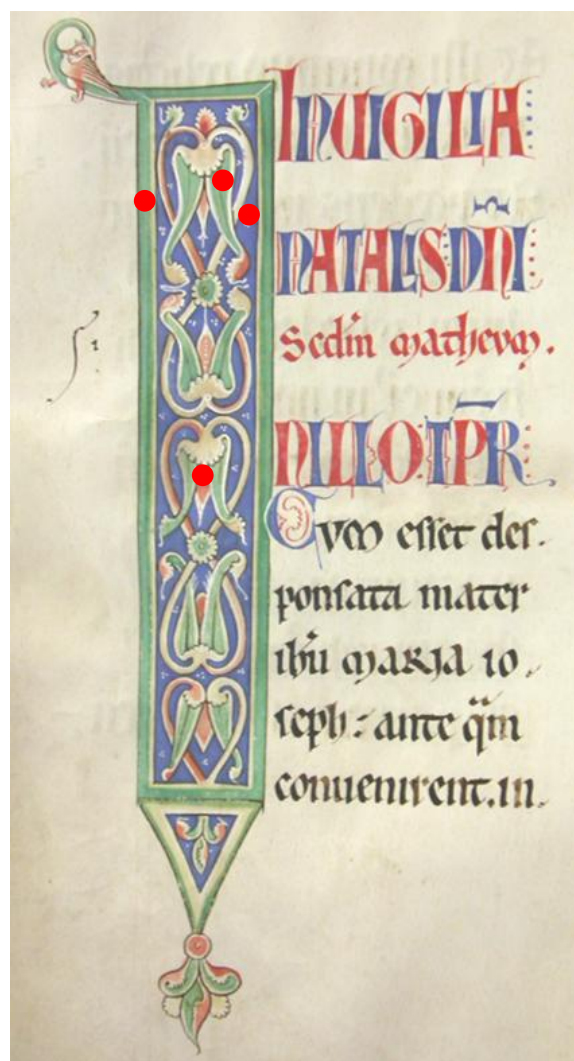 IN UIGILIA
NATALIS DÑI
Scdm matheum.
IN ILLO TPR
Cum esset des.
ponsata mater
ihu maria io
seph: ante qm
conuenirent. in